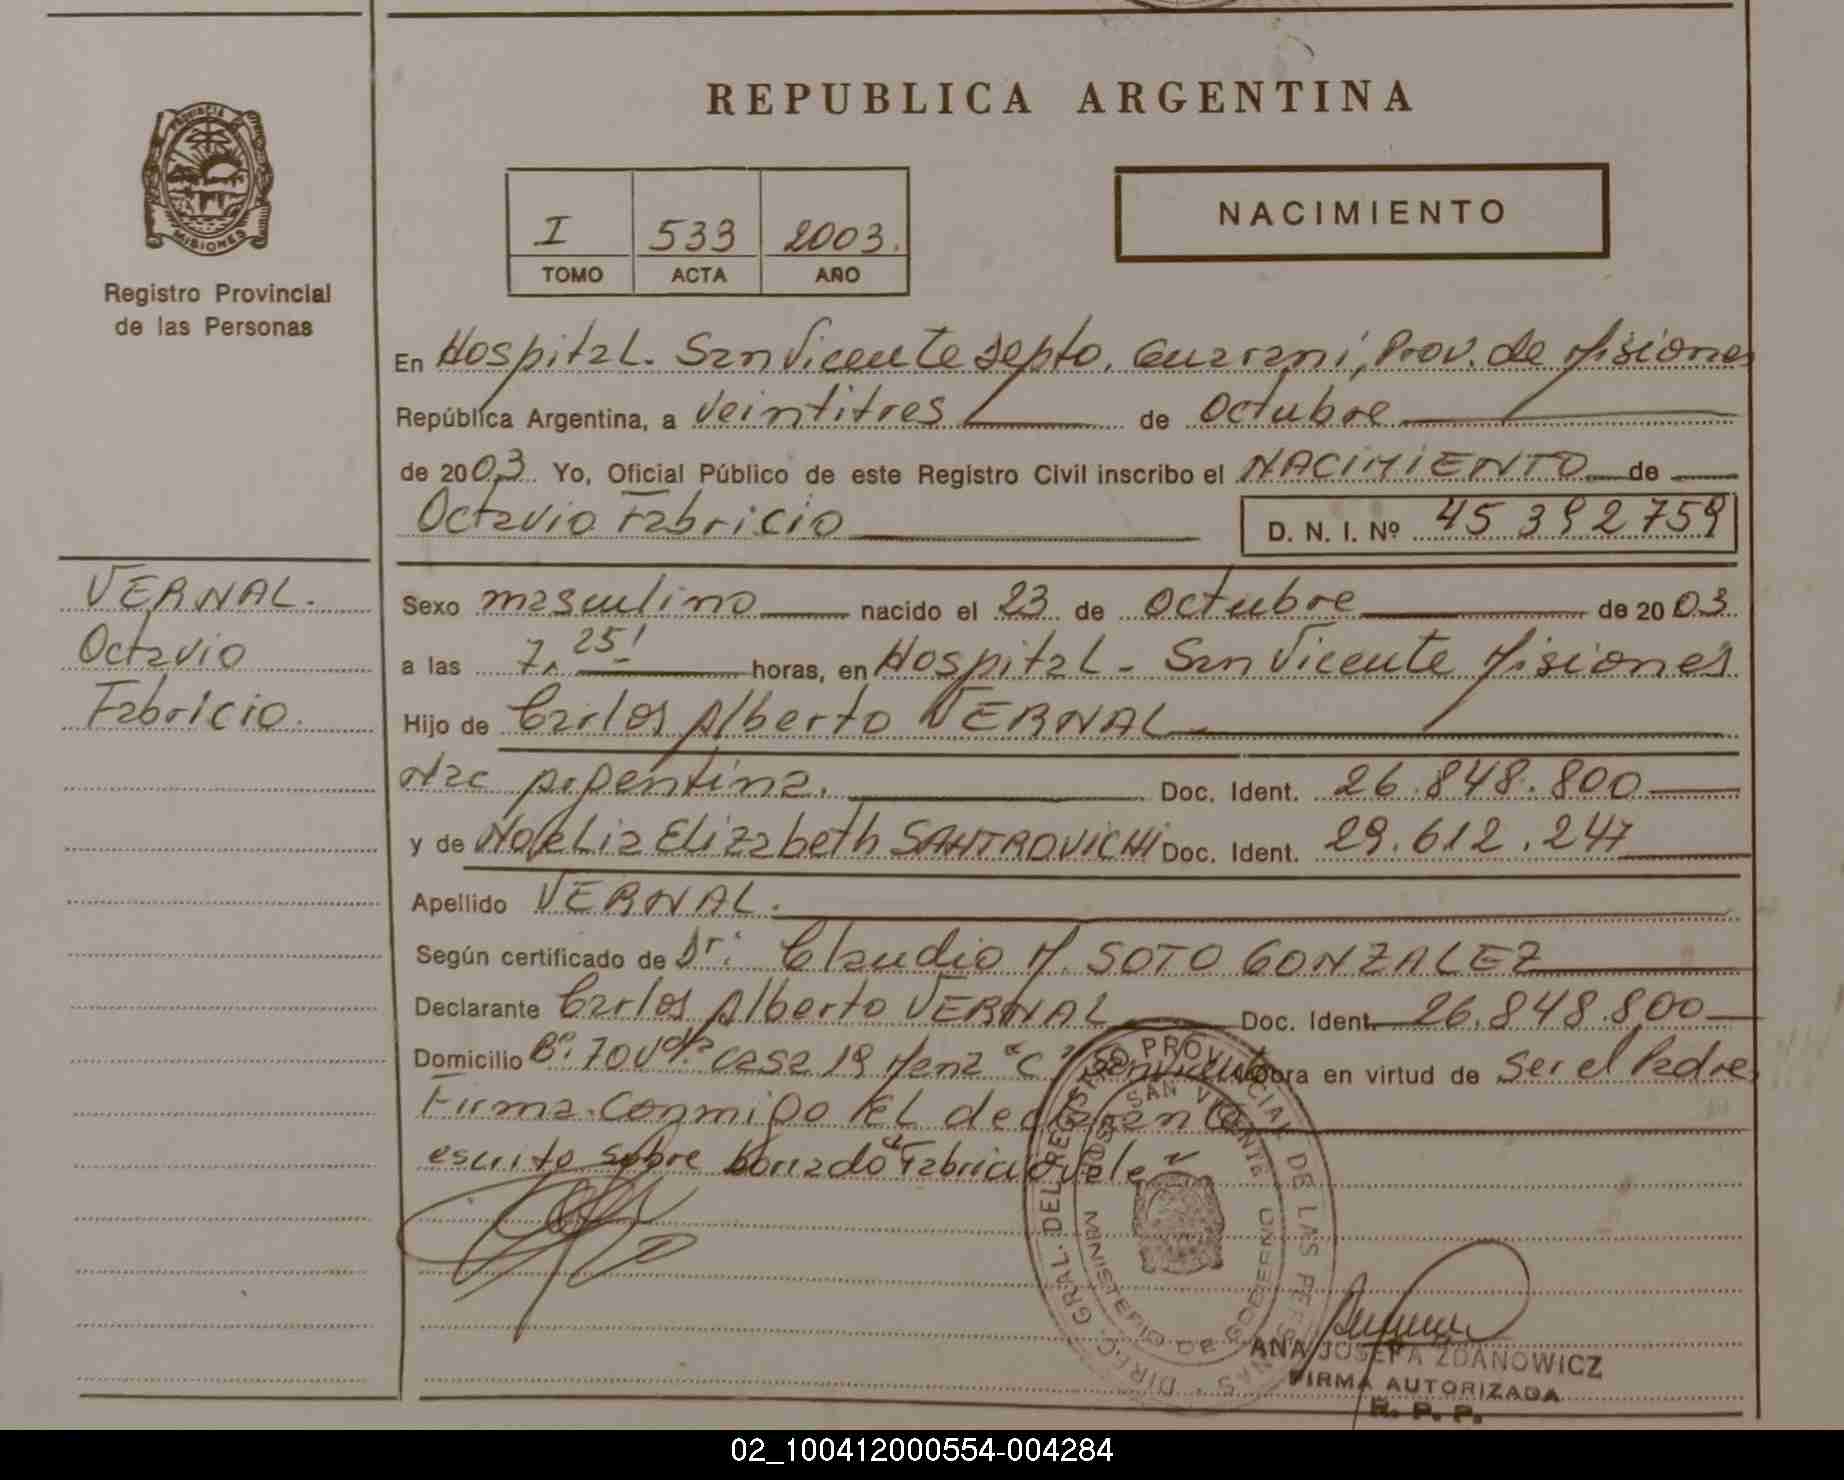 PROVINCIA DE
MISIONES
Registro Provincial
de las Personas
VERNAL.
Octavio
Fabricio.
REPUBLICA ARGENTINA
I 533 2003.
TOMO ACTA AÑO
NACIMIENTO
En Hospital. San Vicente depto. Guarani, Prov. de Misiones
República Argentina, a veintitres de Octubre
de 2003. Yo, Oficial Público de este Registro Civil inscribo el NACIMIENTO de
Octavio Fabricio D. N. I. Nº 45 392 759
Sexo masculino nacido el 23 de Octubre de 2003.
a las 7. 25' horas, en Hospital - San Vicente Misiones
Hijo de Carlos Alberto VERNAL
Nac Argentina. Doc. Ident. 26.848.800
y de Noelia Elizabeth Doc. Ident. 29.612.247
Apellido VERNAL.
Según certificado de Dr. Claudio M. SOTO GONZALEZ
Declarante Carlos Alberto VERNAL Doc. Ident. 26.848.800
Domicilio Bº. 70 Vdas casa 19 Manz "C" San Vicente obra en virtud de ser el Padre
Firma conmigo el declarante
escrito sobre borrado "Fabricio" vale
DIREC. GRAL. DEL REGISTRO PROVINCIAL DE LAS PERSONAS
SAN VICENTE
MINISTERIO DE GOBIERNO
ANA JOSEFA ZDANOWICZ
FIRMA AUTORIZADA
R. P. P.
02_100412000554-004284